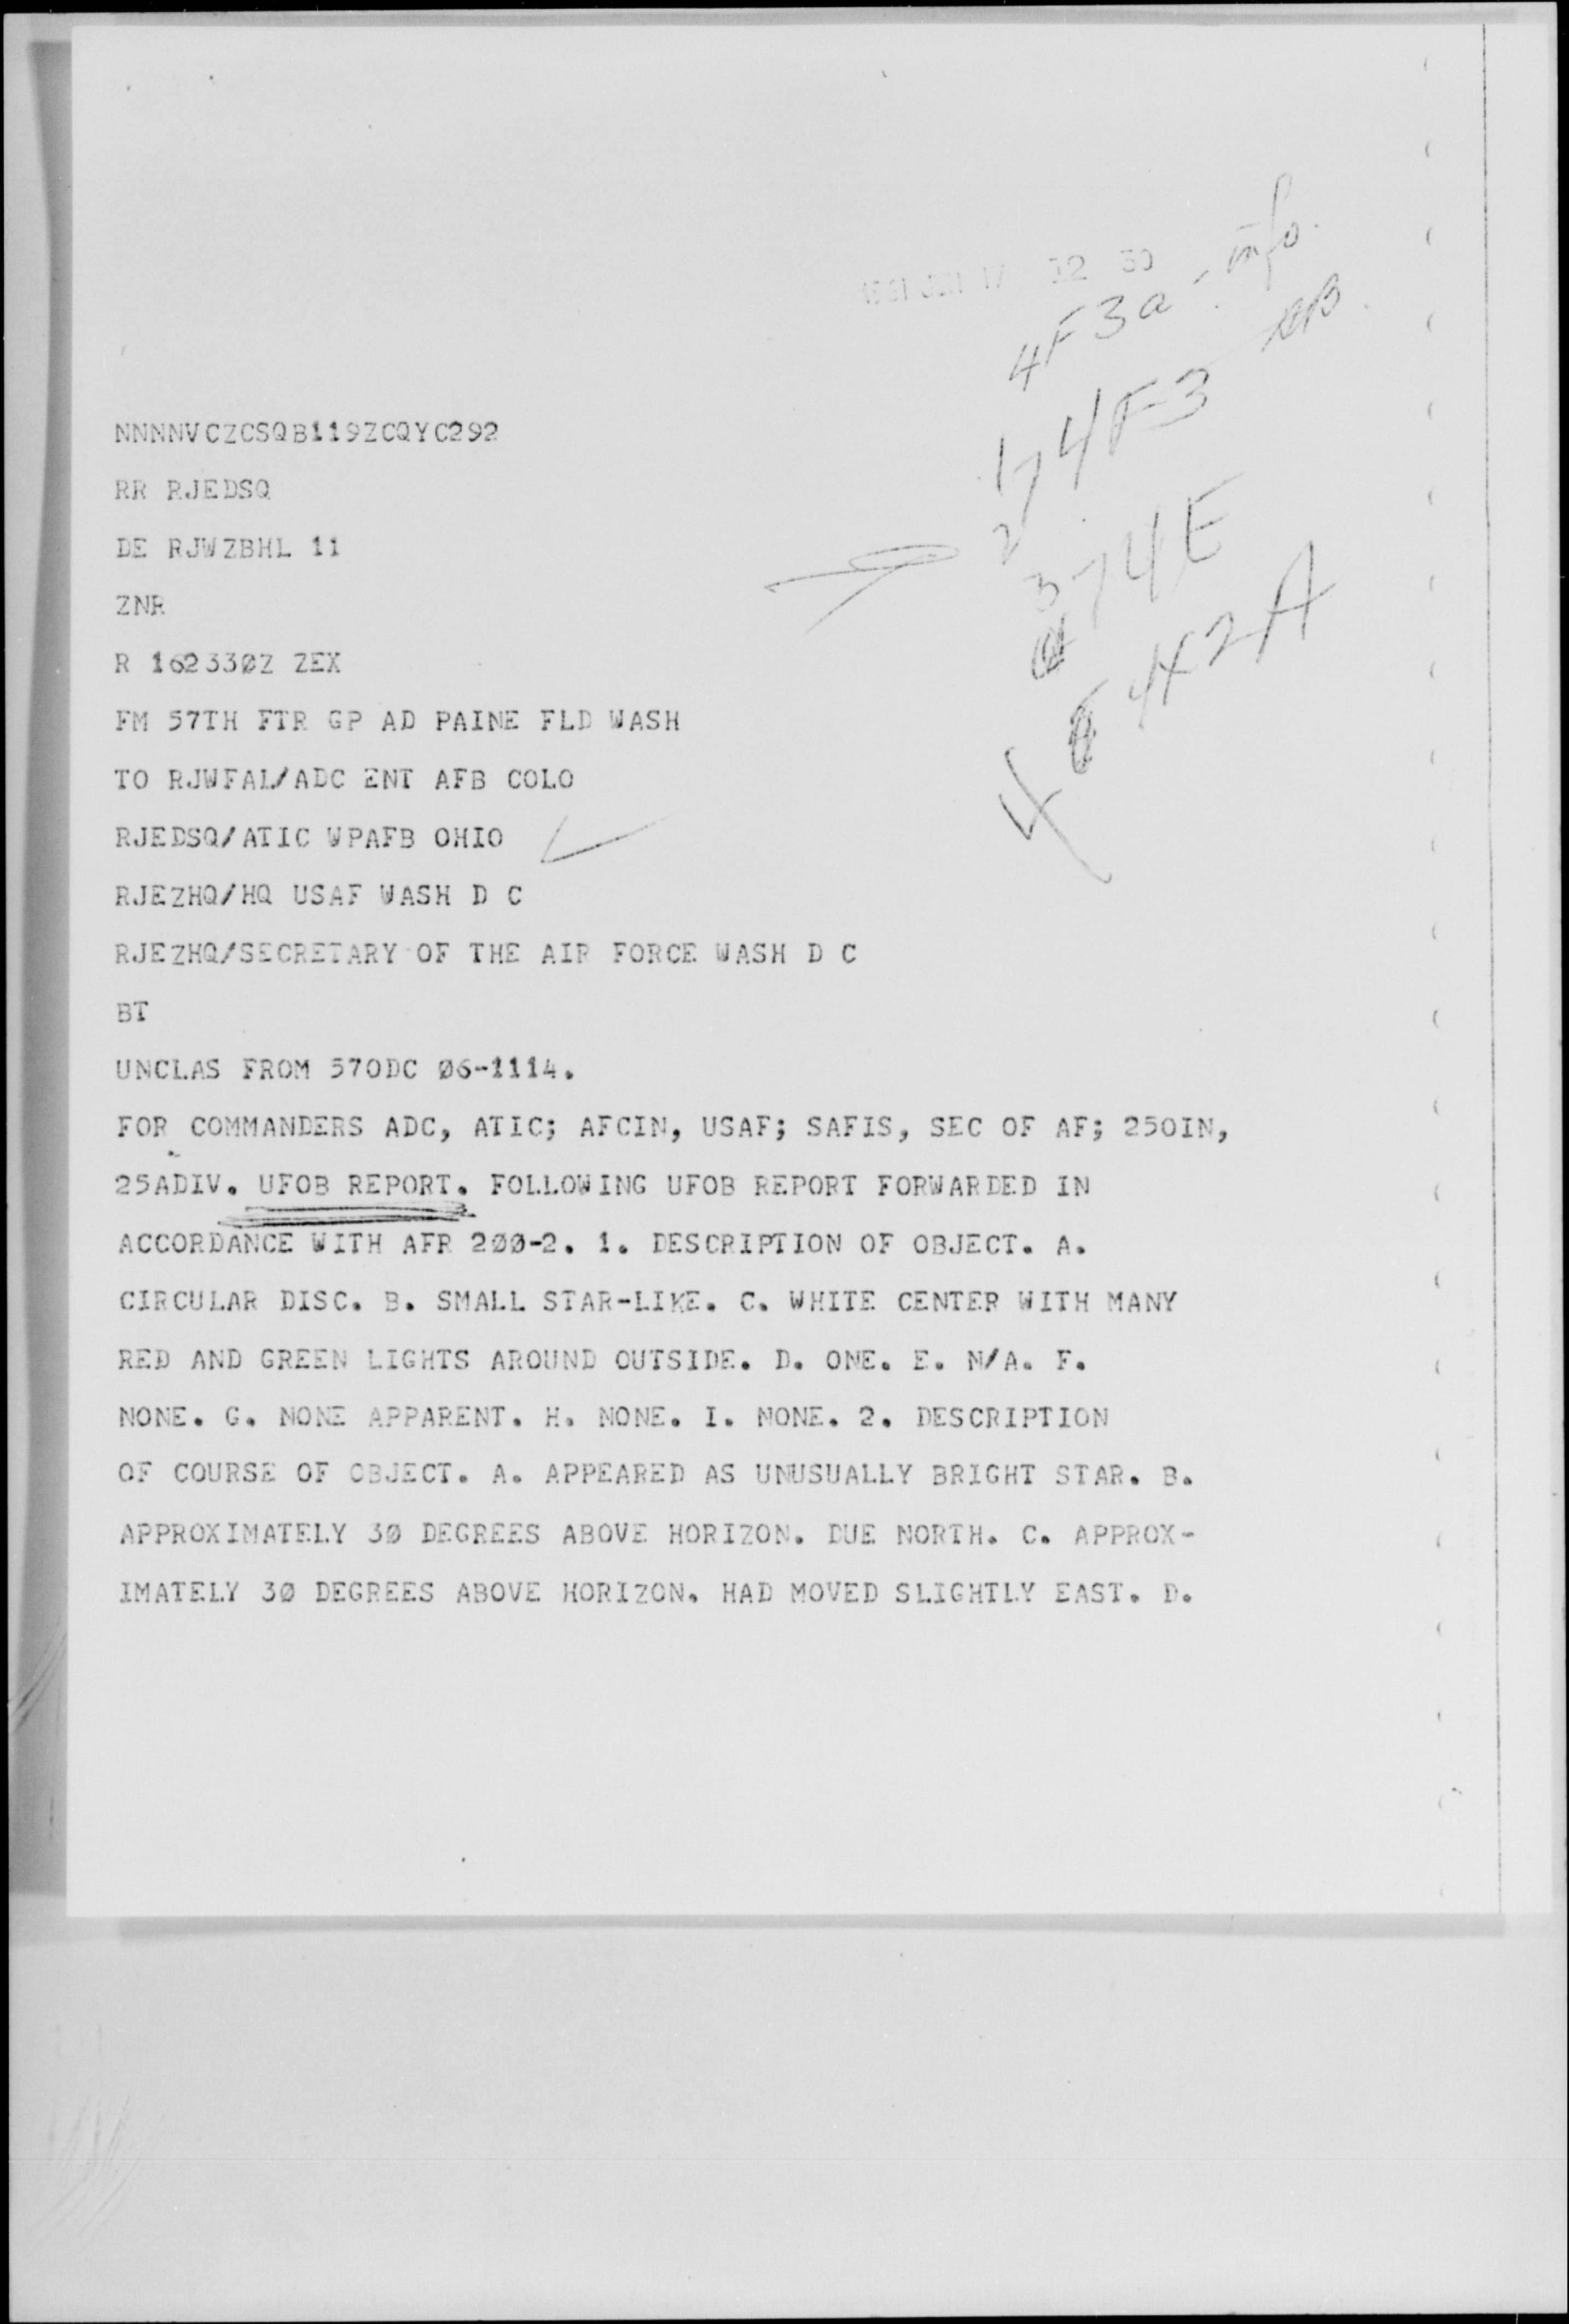 1961 JUN 17 12 30
4F3a - info.
74F3
2
3 74E
4 442A
NNNNVCZCSQB119ZCQYC292
RR RJEDSQ
DE RJWZBHL 11
ZNR
R 162330Z ZEX
FM 57TH FTR GP AD PAINE FLD WASH
TO RJWFAL/ADC ENT AFB COLO
RJEDSQ/ATIC WPAFB OHIO
RJEZHQ/HQ USAF WASH D C
RJEZHQ/SECRETARY OF THE AIR FORCE WASH D C
BT
UNCLAS FROM 57ODC Ø6-1114.
FOR COMMANDERS ADC, ATIC; AFCIN, USAF; SAFIS, SEC OF AF; 25OIN,
25ADIV. UFOB REPORT. FOLLOWING UFOB REPORT FORWARDED IN
ACCORDANCE WITH AFR 2ØØ-2. 1. DESCRIPTION OF OBJECT. A.
CIRCULAR DISC. B. SMALL STAR-LIKE. C. WHITE CENTER WITH MANY
RED AND GREEN LIGHTS AROUND OUTSIDE. D. ONE. E. N/A. F.
NONE. G. NONE APPARENT. H. NONE. I. NONE. 2. DESCRIPTION
OF COURSE OF OBJECT. A. APPEARED AS UNUSUALLY BRIGHT STAR. B.
APPROXIMATELY 3Ø DEGREES ABOVE HORIZON. DUE NORTH. C. APPROX-
IMATELY 3Ø DEGREES ABOVE HORIZON. HAD MOVED SLIGHTLY EAST. D.